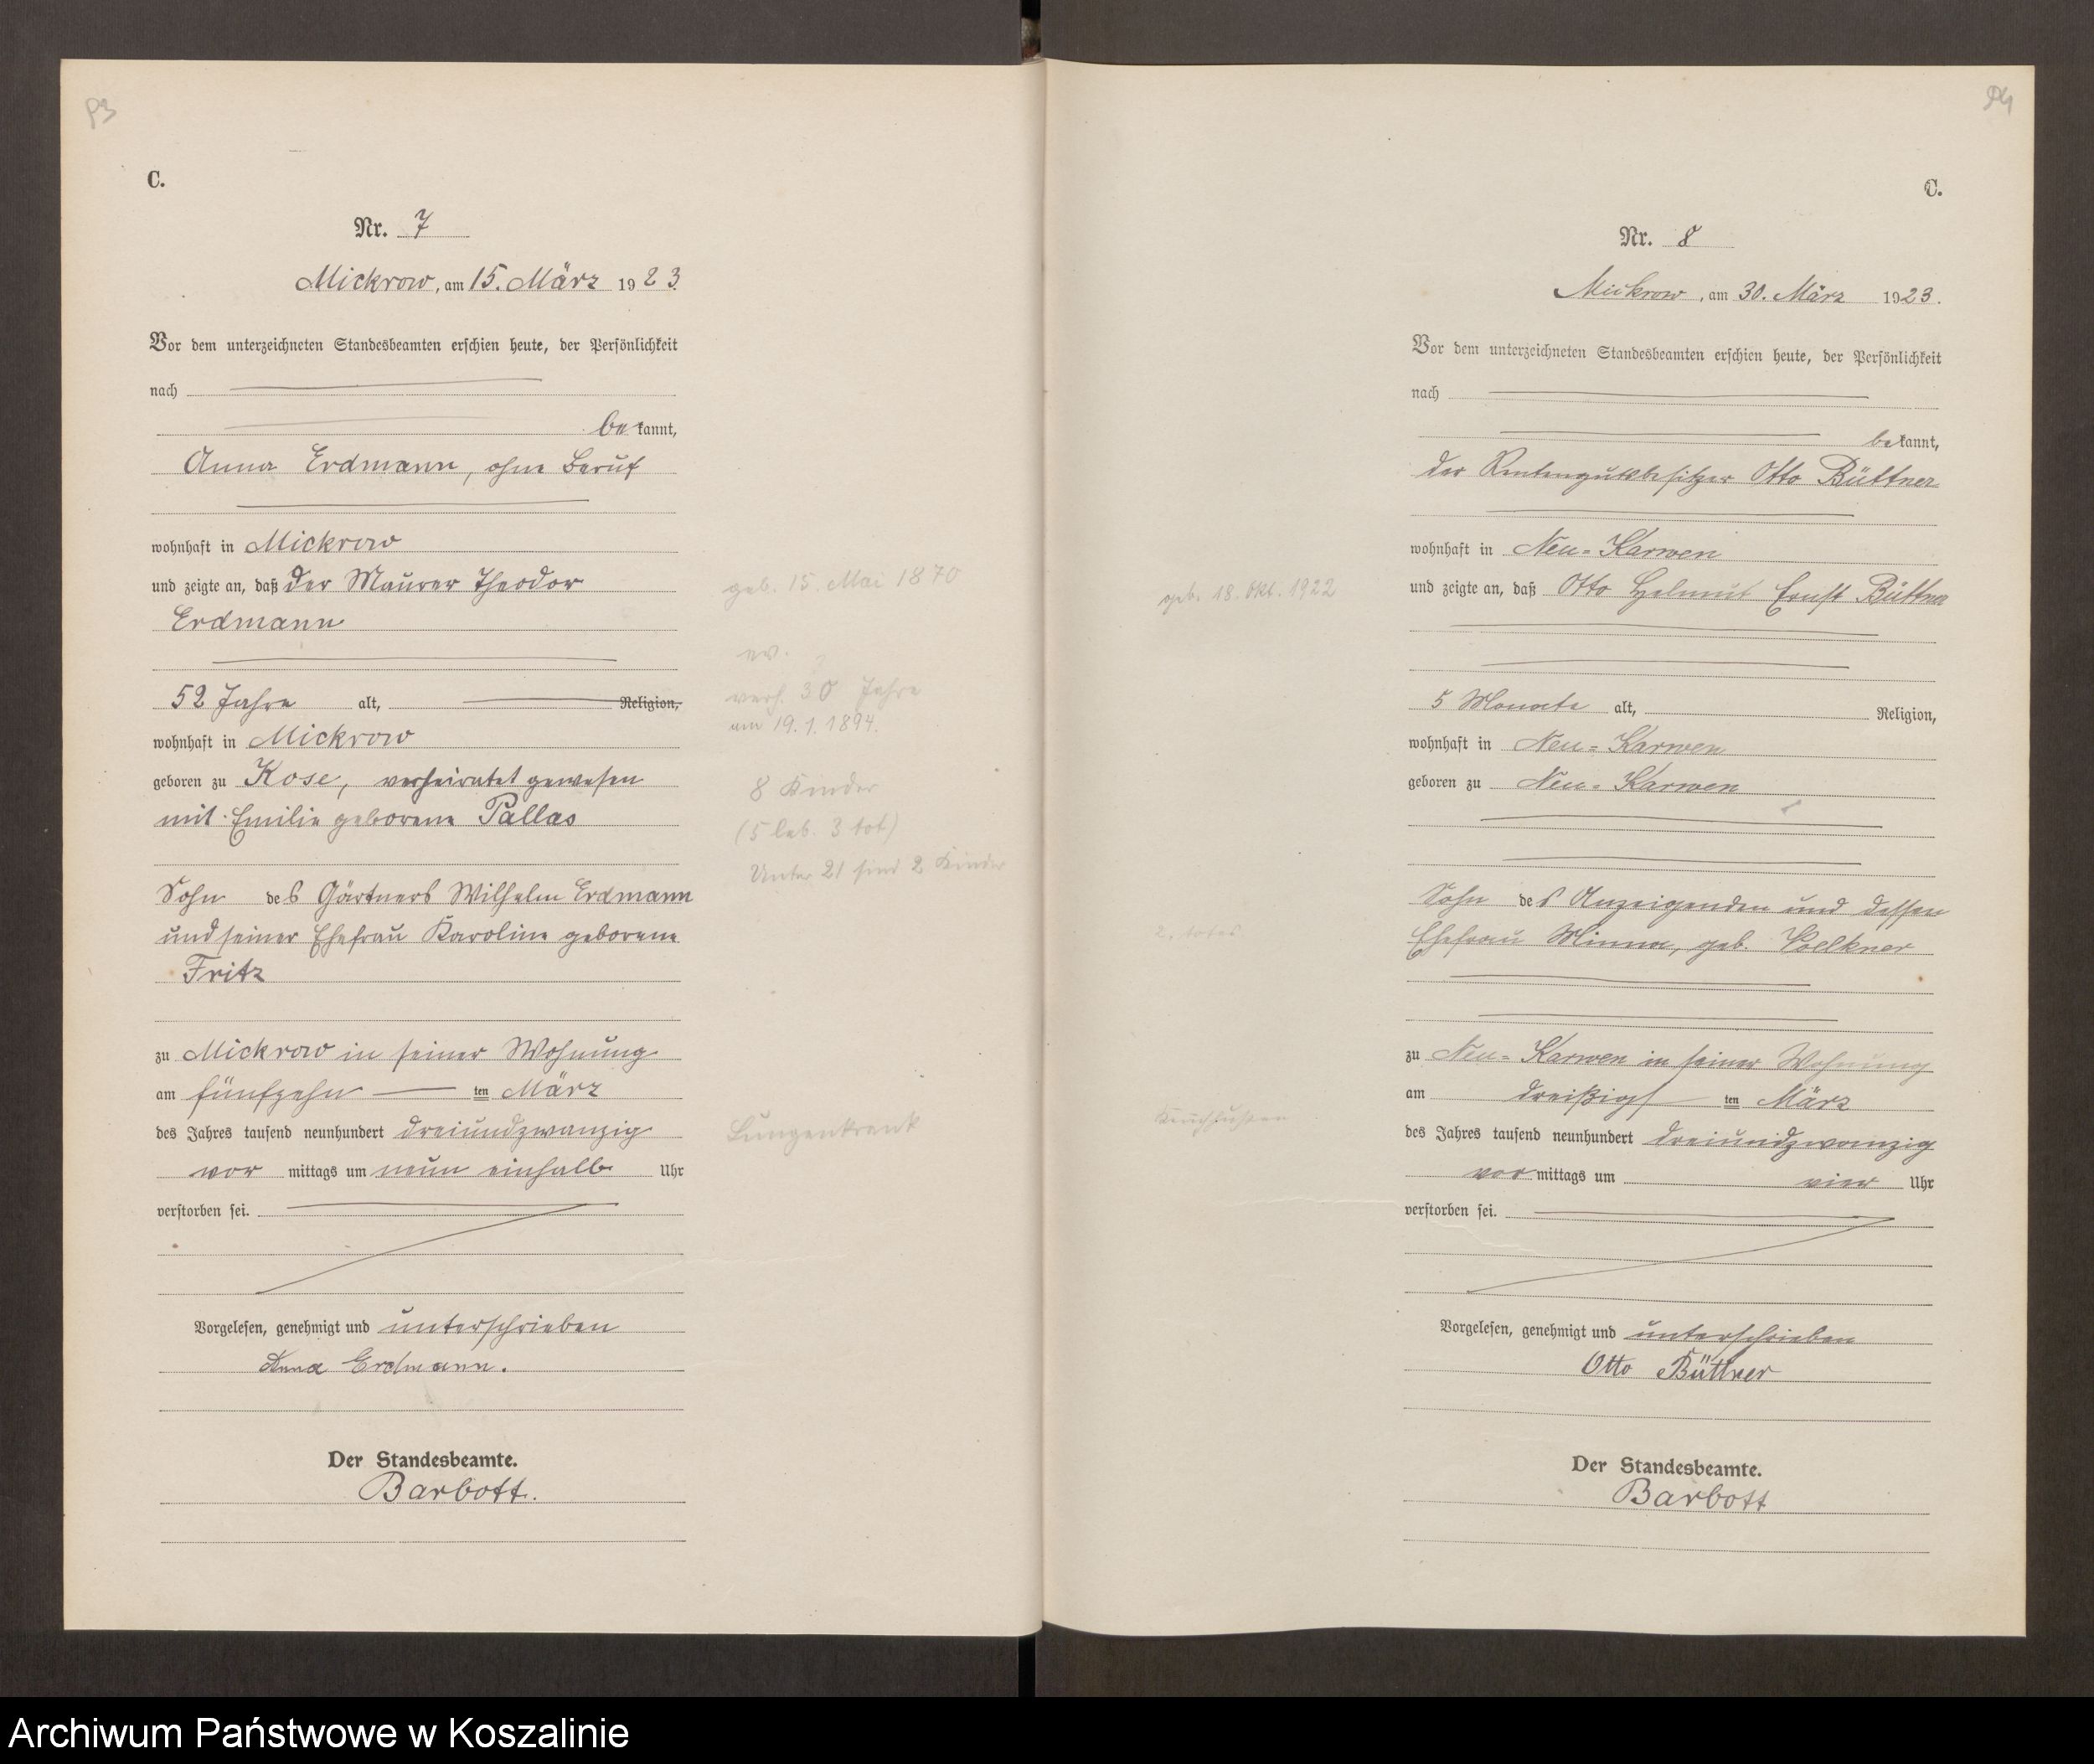 93
C.
Nr. 7
Mickrow, am 15. März 1923.
Vor dem unterzeichneten Standesbeamten erschien heute, der Persönlichkeit
nach
bekannt,
Anna Erdmann, ohne Beruf
wohnhaft in Mickrow
und zeigte an, daß der Maurer Theodor
Erdmann
52 Jahre alt, Religion,
wohnhaft in Mickrow
geboren zu Kose, verheiratet gewesen
mit Emilie geborene Pallas
Sohn des Gärtners Wilhelm Erdmann
und seiner Ehefrau Karoline geborene
Fritz
zu Mickrow in seiner Wohnung
am fünfzehn ten März
des Jahres tausend neunhundert dreiundzwanzig
vor mittags um neun einhalb Uhr
verstorben sei.
Vorgelesen, genehmigt und unterschrieben
Anna Erdmann.
Der Standesbeamte.
Barbott.
geb. 15. Mai 1870
ev.
verh. 30 Jahre
am 19.1.1894.
8 Kinder
(5 leb. 3 tot)
Unter 21 sind 2 Kinder
Lungenkrank
94
C.
Nr. 8
Mickrow, am 30. März 1923.
Vor dem unterzeichneten Standesbeamten erschien heute, der Persönlichkeit
nach
bekannt,
der Rentengutsbesitzer Otto Büttner
wohnhaft in Neu-Karwen
und zeigte an, daß Otto Helmut Ernst Büttner
5 Monate alt, Religion,
wohnhaft in Neu-Karwen
geboren zu Neu-Karwen
Sohn des Anzeigenden und dessen
Ehefrau Minna, geb. Voelkner
zu Neu-Karwen in seiner Wohnung
am dreißigst ten März
des Jahres tausend neunhundert dreiundzwanzig
vor mittags um vier Uhr
verstorben sei.
Vorgelesen, genehmigt und unterschrieben
Otto Büttner
Der Standesbeamte.
Barbott
geb. 18. Okt. 1922
Keuchhusten
Archiwum Państwowe w Koszalinie